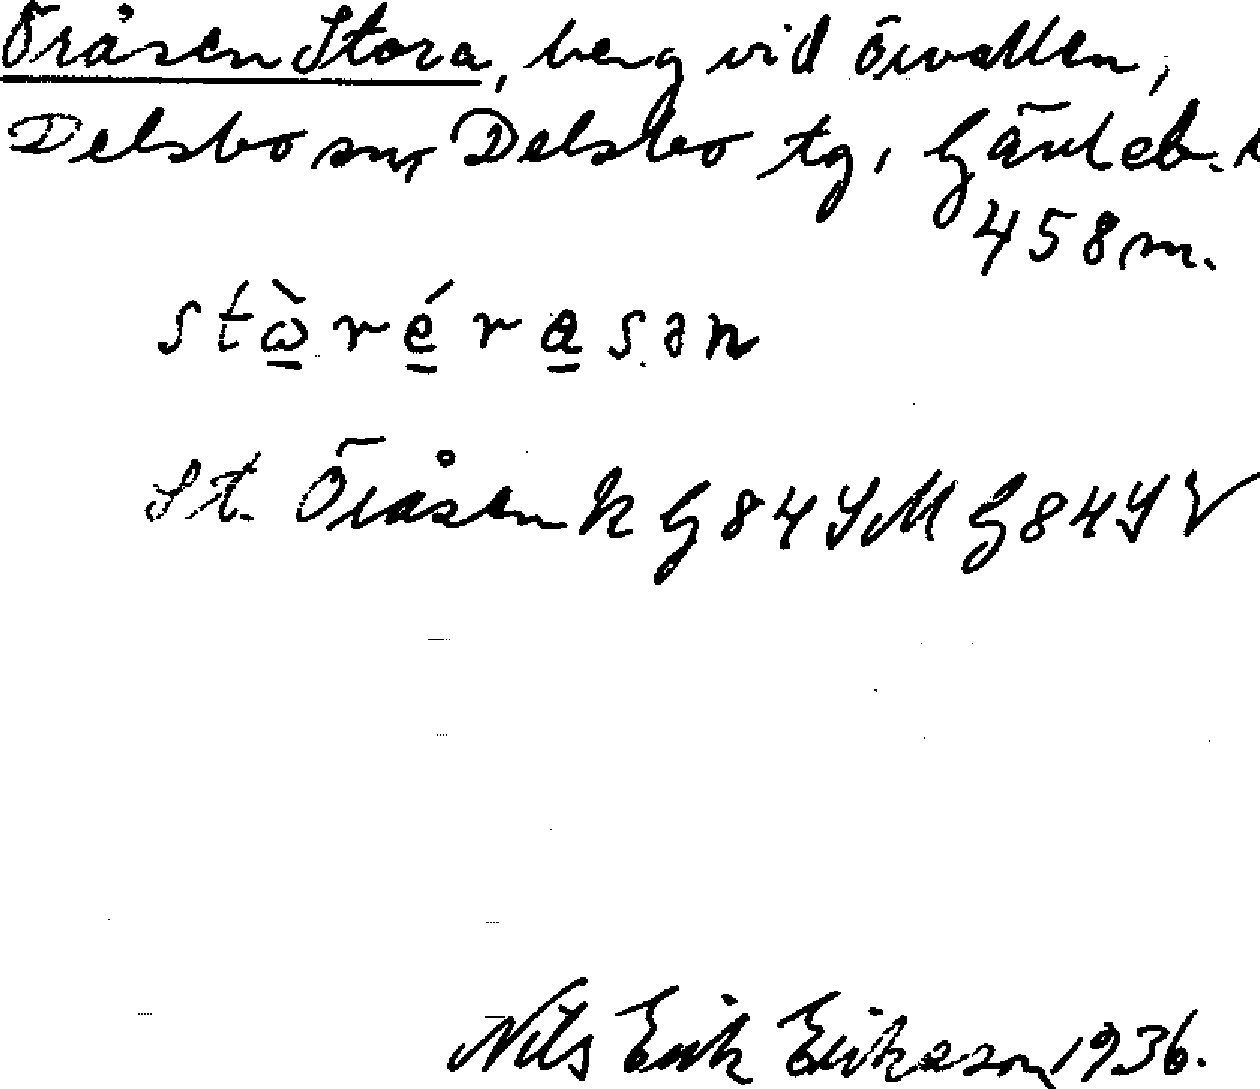 Öråsen Stora, berg vid Örvallen,
Delsbo sn, Delsbo tg, Gävleb.
458 m.
stὼ̱ré̱ra̱sən
St. Öråsen K G84SM G84SV
Nils Erik Eriksson 1936.